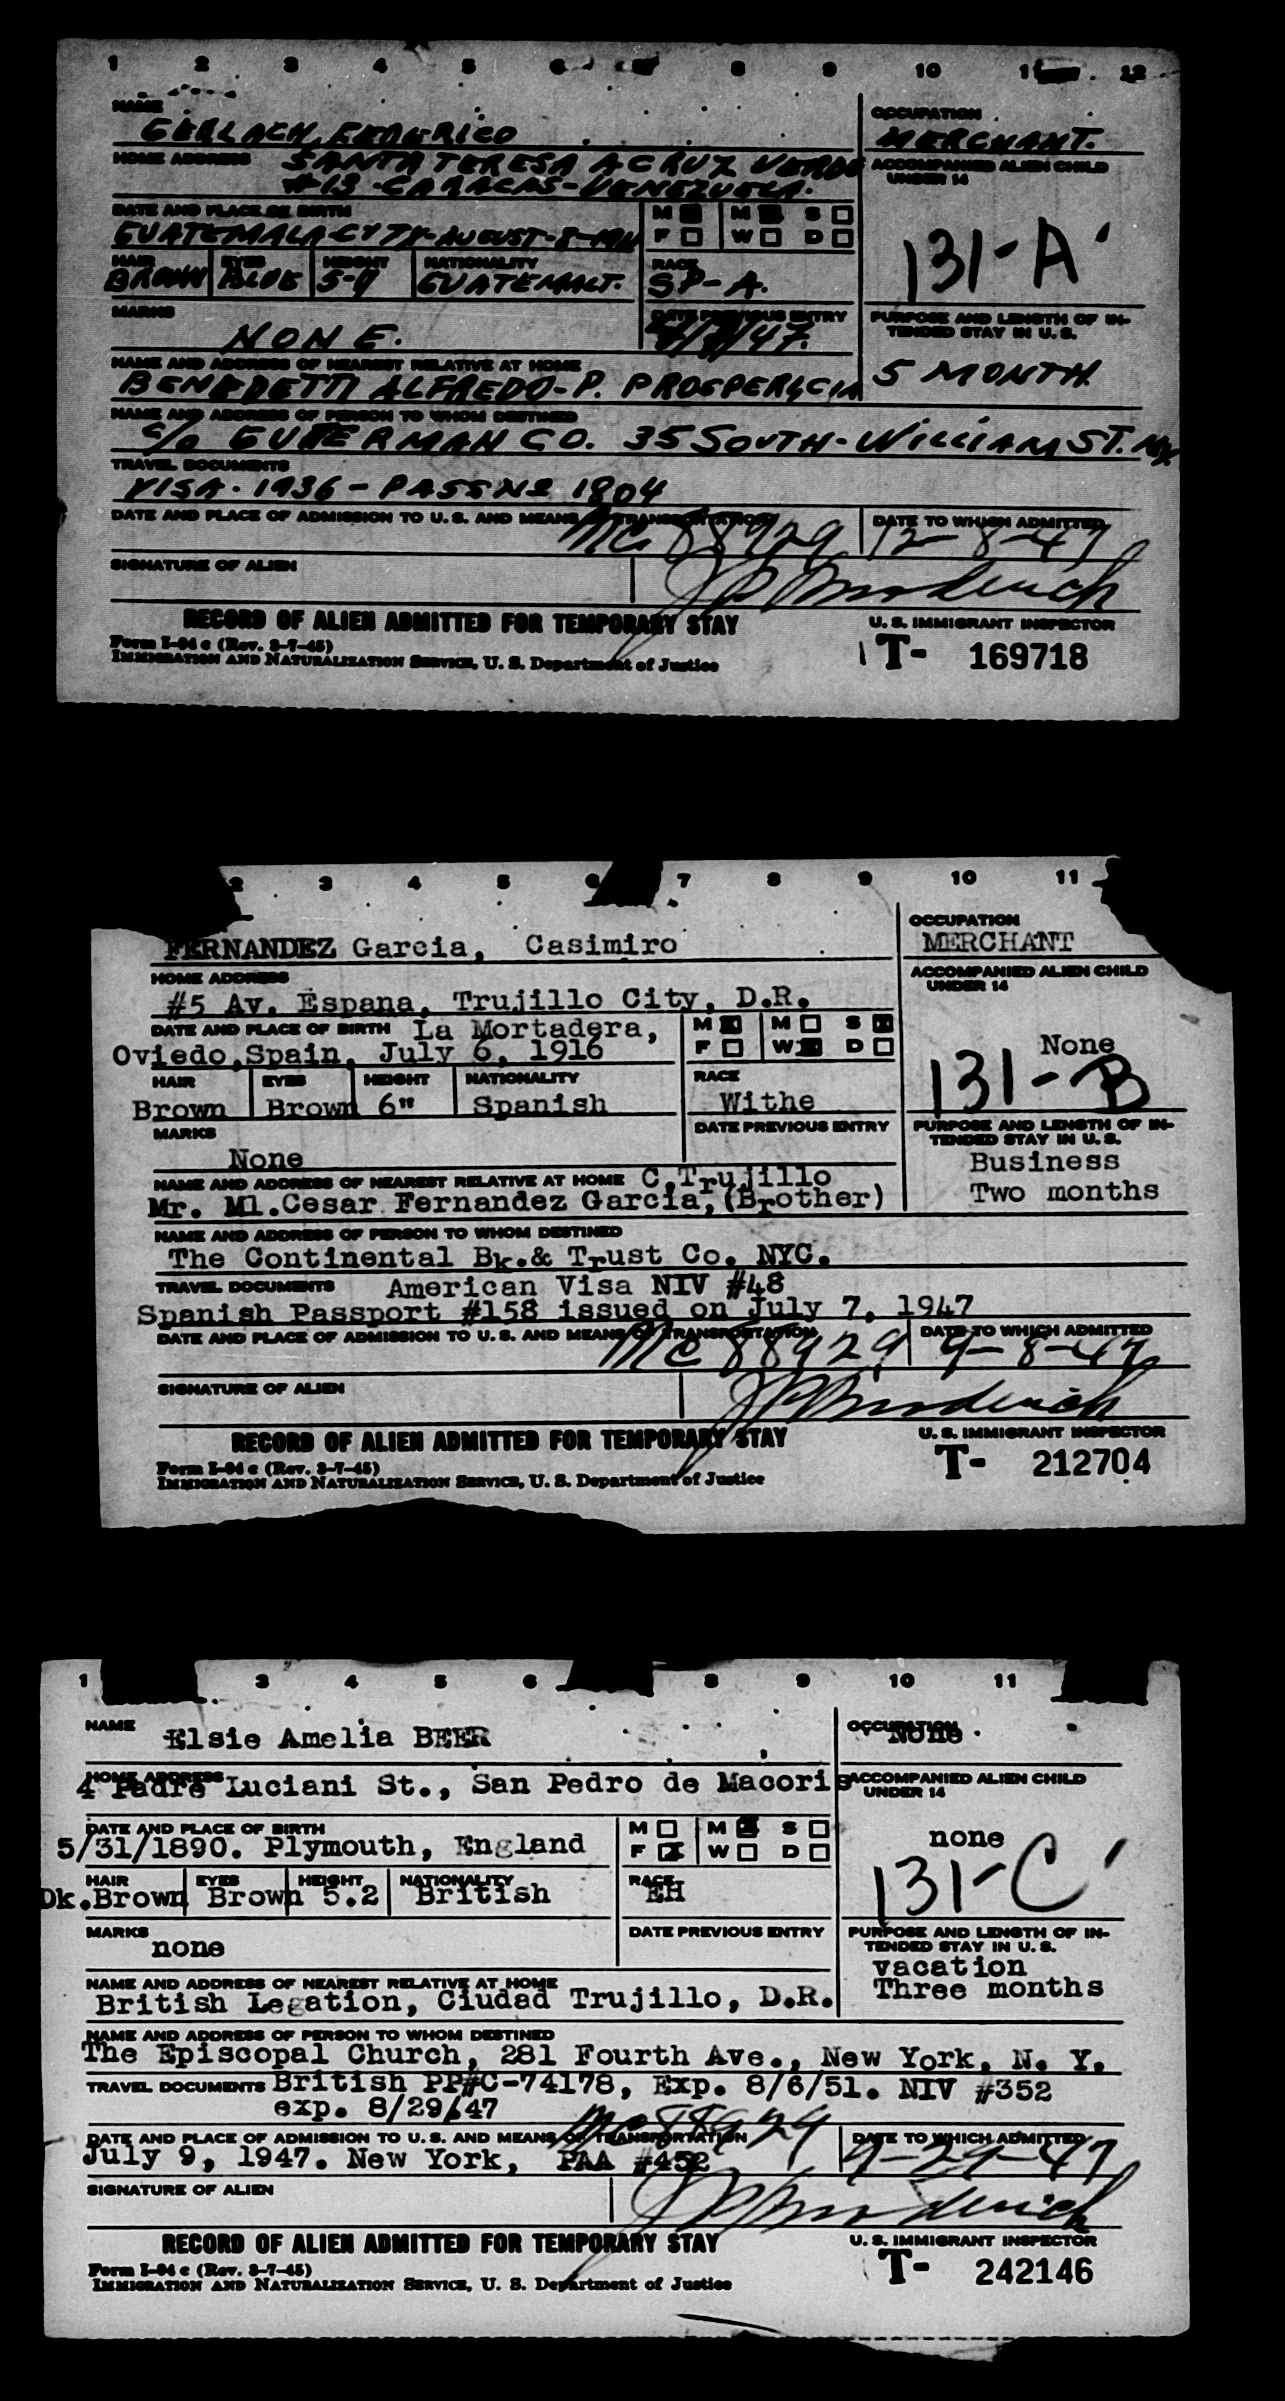 1 2 3 4 5 6 8 9 10 11 12
NAME
GERLACH, FEDERICO
OCCUPATION
MERCHANT.
HOME ADDRESS SANTA TERESA A CRUZ VERDE
#13 - CARACAS - VENEZUELA.
ACCOMPANIED ALIEN CHILD
UNDER 14
131-A
DATE AND PLACE OF BIRTH
GUATEMALA CYTY - AUGUST - 8 -
M M S
F W D
HAIR EYES HEIGHT NATIONALITY RACE
BROWN BLUE GUATEMALT. SP-A.
MARKS
NONE.
DATE PREVIOUS ENTRY
/47.
PURPOSE AND LENGTH OF IN-
TENDED STAY IN U. S.
5 MONTH
NAME AND ADDRESS OF NEAREST RELATIVE AT HOME
BENEDETTI ALFREDO - P.
NAME AND ADDRESS OF PERSON TO WHOM DESTINED
C/O GUTERMAN CO. 35 SOUTH - WILLIAM ST. NY
TRAVEL DOCUMENTS
VISA - 1936 - PASS No 1804
DATE AND PLACE OF ADMISSION TO U. S. AND MEANS OF TRANSPORTATION
NC 88929
DATE TO WHICH ADMITTED
12-8-47
SIGNATURE OF ALIEN
RECORD OF ALIEN ADMITTED FOR TEMPORARY STAY
U. S. IMMIGRANT INSPECTOR
Form I-94 c (Rev. 3-7-45)
IMMIGRATION AND NATURALIZATION SERVICE, U. S. Department of Justice
T- 169718
2 3 4 5 6 7 8 9 10 11
FERNANDEZ Garcia, Casimiro
OCCUPATION
MERCHANT
HOME ADDRESS
#5 Av. Espana, Trujillo City, D.R.
ACCOMPANIED ALIEN CHILD
UNDER 14
None
131-B
DATE AND PLACE OF BIRTH La Mortadera,
Oviedo,Spain, July 6, 1916
M M S
F W D
HAIR EYES HEIGHT NATIONALITY RACE
Brown Brown 6" Spanish Withe
MARKS
None
DATE PREVIOUS ENTRY
PURPOSE AND LENGTH OF IN-
TENDED STAY IN U. S.
Business
Two months
NAME AND ADDRESS OF NEAREST RELATIVE AT HOME C.Trujillo
Mr. Ml.Cesar Fernandez Garcia,(Brother)
NAME AND ADDRESS OF PERSON TO WHOM DESTINED
The Continental Bk.& Trust Co. NYC.
TRAVEL DOCUMENTS American Visa NIV #48
Spanish Passport #158 issued on July 7, 1947
DATE AND PLACE OF ADMISSION TO U. S. AND MEANS OF TRANSPORTATION
NC 88929
DATE TO WHICH ADMITTED
9-8-47
SIGNATURE OF ALIEN
RECORD OF ALIEN ADMITTED FOR TEMPORARY STAY
U. S. IMMIGRANT INSPECTOR
Form I-94 c (Rev. 3-7-45)
IMMIGRATION AND NATURALIZATION SERVICE, U. S. Department of Justice
T- 212704
1 3 4 5 6 8 9 10 11
NAME
Elsie Amelia BEER
OCCUPATION
None
HOME ADDRESS
4 Padre Luciani St., San Pedro de Macoris
ACCOMPANIED ALIEN CHILD
UNDER 14
none
131-C
DATE AND PLACE OF BIRTH
5/31/1890. Plymouth, England
M M S
F W D
HAIR EYES HEIGHT NATIONALITY RACE
Dk.Brown Brown 5.2 British EH
MARKS
none
DATE PREVIOUS ENTRY
PURPOSE AND LENGTH OF IN-
TENDED STAY IN U. S.
vacation
Three months
NAME AND ADDRESS OF NEAREST RELATIVE AT HOME
British Legation, Ciudad Trujillo, D.R.
NAME AND ADDRESS OF PERSON TO WHOM DESTINED
The Episcopal Church, 281 Fourth Ave., New York, N. Y.
TRAVEL DOCUMENTS British PP#C-74178, Exp. 8/6/51. NIV #352
exp. 8/29/47
DATE AND PLACE OF ADMISSION TO U. S. AND MEANS OF TRANSPORTATION
NC 88929
July 9, 1947. New York, PAA #452
DATE TO WHICH ADMITTED
9-29-47
SIGNATURE OF ALIEN
RECORD OF ALIEN ADMITTED FOR TEMPORARY STAY
U. S. IMMIGRANT INSPECTOR
Form I-94 c (Rev. 3-7-45)
IMMIGRATION AND NATURALIZATION SERVICE, U. S. Department of Justice
T- 242146